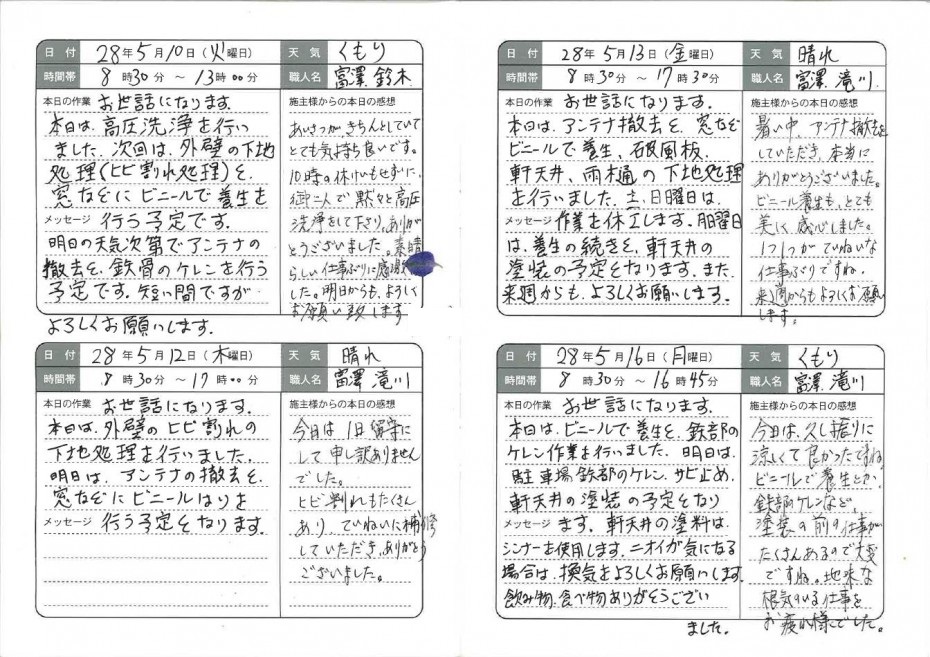 日付 28年5月10日(火曜日) 天気 くもり
時間帯 8時30分 ~ 13時00分 職人名 富澤 鈴木
本日の作業 お世話になります。
本日は、高圧洗浄を行い
ました。次回は、外壁の下地
処理(ヒビ割れ処理)を、
窓などにビニールで養生を
メッセージ 行う予定です。
明日の天気次第でアンテナの
撤去を、鉄骨のケレンを行う
予定です。短い間ですが
よろしくお願いします。
施主様からの本日の感想
あいさつがきちんとしていて
とても気持ち良いです。
10時の休けいもせずに、
御二人で黙々と高圧
洗浄をして下さり、ありが
とうございました。素晴
らしい仕事ぶりに感激
した。明日からも、よろしく
お願い致します
日付 28年5月12日(木曜日) 天気 晴れ
時間帯 8時30分 ~ 17時00分 職人名 富澤 滝川
本日の作業 お世話になります。
本日は、外壁のヒビ割れの
下地処理を行いました。
明日は、アンテナの撤去を、
窓などにビニールはりを
メッセージ 行う予定となります。
施主様からの本日の感想
今日は1日留守に
して申し訳ありません
でした。
ヒビ割れもたくさん
あり、ていねいに補修
していただき、ありがとう
ございました。
日付 28年5月13日(金曜日) 天気 晴れ
時間帯 8時30分 ~ 17時30分 職人名 富澤 滝川
本日の作業 お世話になります。
本日は、アンテナ撤去を、窓など
ビニールで養生、破風板、
軒天井、雨樋の下地処理
を行いました。土、日曜日は、
メッセージ 作業を休工します。月曜日
は、養生の続きを、軒天井の
塗装の予定となります。また、
来週からも、よろしくお願いします。
施主様からの本日の感想
暑い中、アンテナ撤去を
していただき、本当に
ありがとうございました。
ビニール養生も、とても
美しく、感心しました。
1つ1つがていねいな
仕事ぶりですね。
来週からもよろしくお願い
します。
日付 28年5月16日(月曜日) 天気 くもり
時間帯 8時30分 ~ 16時45分 職人名 富澤 滝川
本日の作業 お世話になります。
本日は、ビニールで養生を、鉄部の
ケレン作業を行いました。明日は、
駐車場鉄部のケレン、サビ止め、
軒天井の塗装の予定となり
メッセージ ます。軒天井の塗料は
シンナーを使用します。ニオイが気になる
場合は、換気をよろしくお願いします。
飲み物、食べ物ありがとうござい
ました。
施主様からの本日の感想
今日は、久し振りに
涼しくて良かったですね。
ビニールで養生とか、
鉄部のケレンなど、
塗装の前の仕事が
たくさんあるので大変
ですね。地味な
根気のいる仕事を
お疲れ様でした。